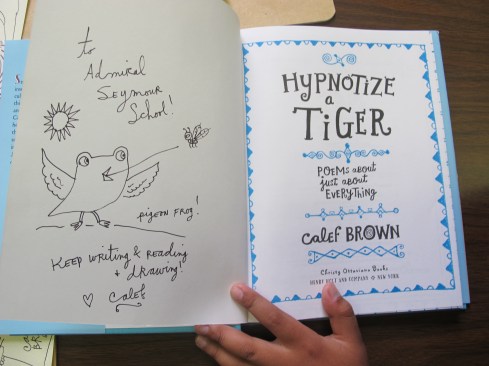 to
Admiral
Seymour
School!
pigeon frog!
Keep writing & reading
+ drawing!
Calef
HYPNOTIZE
a
TiGER
POEMS about
just about
EVERYTHING
Calef BROWN
Christy Ottaviano Books
HENRY HOLT AND COMPANY • NEW YORK